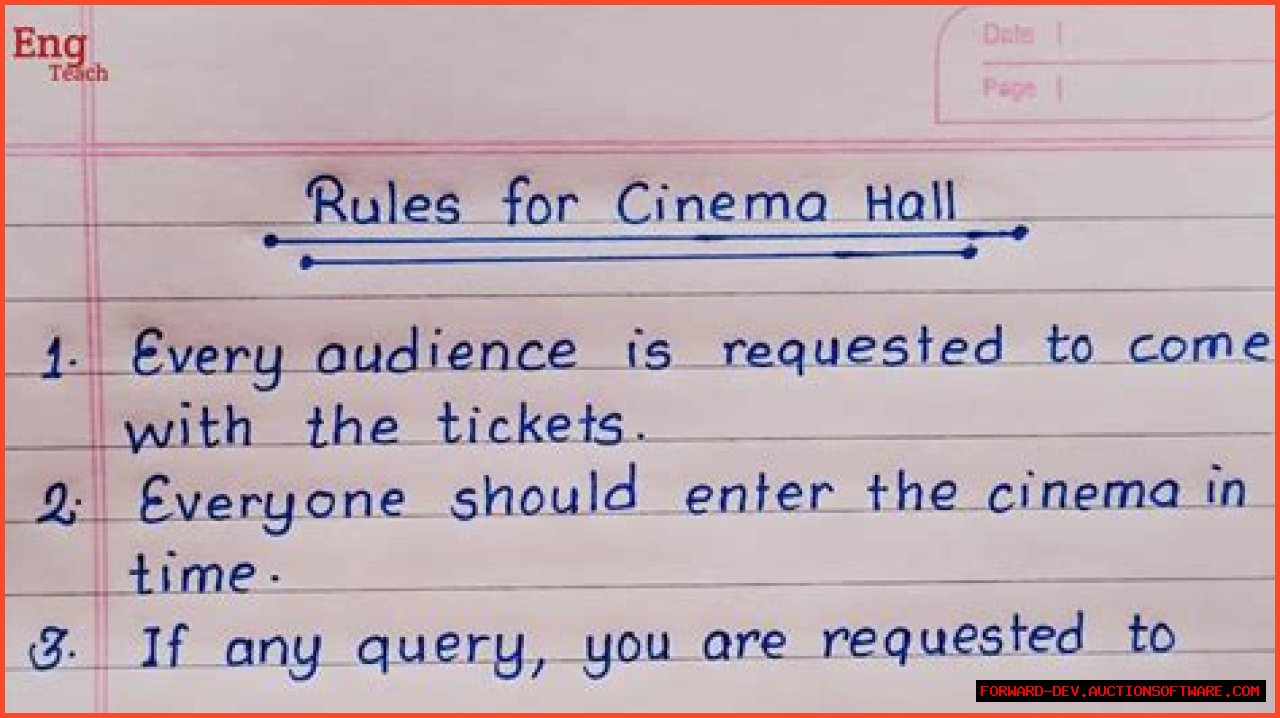 Eng
Teach
Date |
Page |
Rules for Cinema Hall
1. Every audience is requested to come
with the tickets.
2. Everyone should enter the cinema in
time.
3. If any query, you are requested to
FORWARD-DEV.AUCTIONSOFTWARE.COM